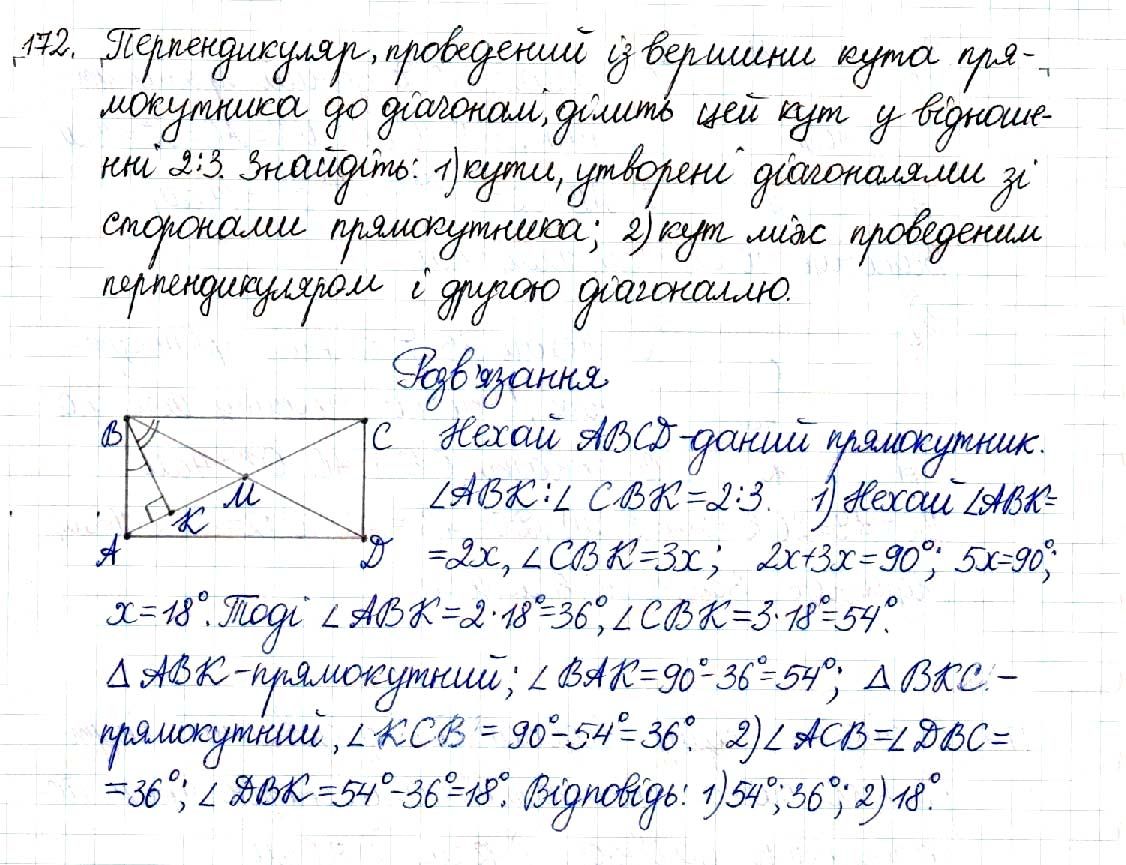 172. Перпендикуляр, проведений із вершини кута пря-
мокутника до діагоналі, ділить цей кут у відноше-
нні 2:3. Знайдіть: 1) кути, утворені діагоналями зі
сторонами прямокутника; 2) кут між проведеним
перпендикуляром і другою діагоналлю.
Розв'язання
B
C
M
K
A
D
Нехай ABCD - даний прямокутник.
∠ABK : ∠CBK = 2:3. 1) Нехай ∠ABK =
= 2x, ∠CBK = 3x; 2x+3x = 90°; 5x=90°;
x = 18°. Тоді ∠ABK = 2·18°=36°, ∠CBK = 3·18°=54°.
△ABK - прямокутний; ∠BAK = 90°-36°=54°; △BKC -
прямокутний, ∠KCB = 90°-54°=36°. 2) ∠ACB = ∠DBC =
= 36°; ∠DBK = 54°-36°=18°. Відповідь: 1) 54°; 36°; 2) 18°.